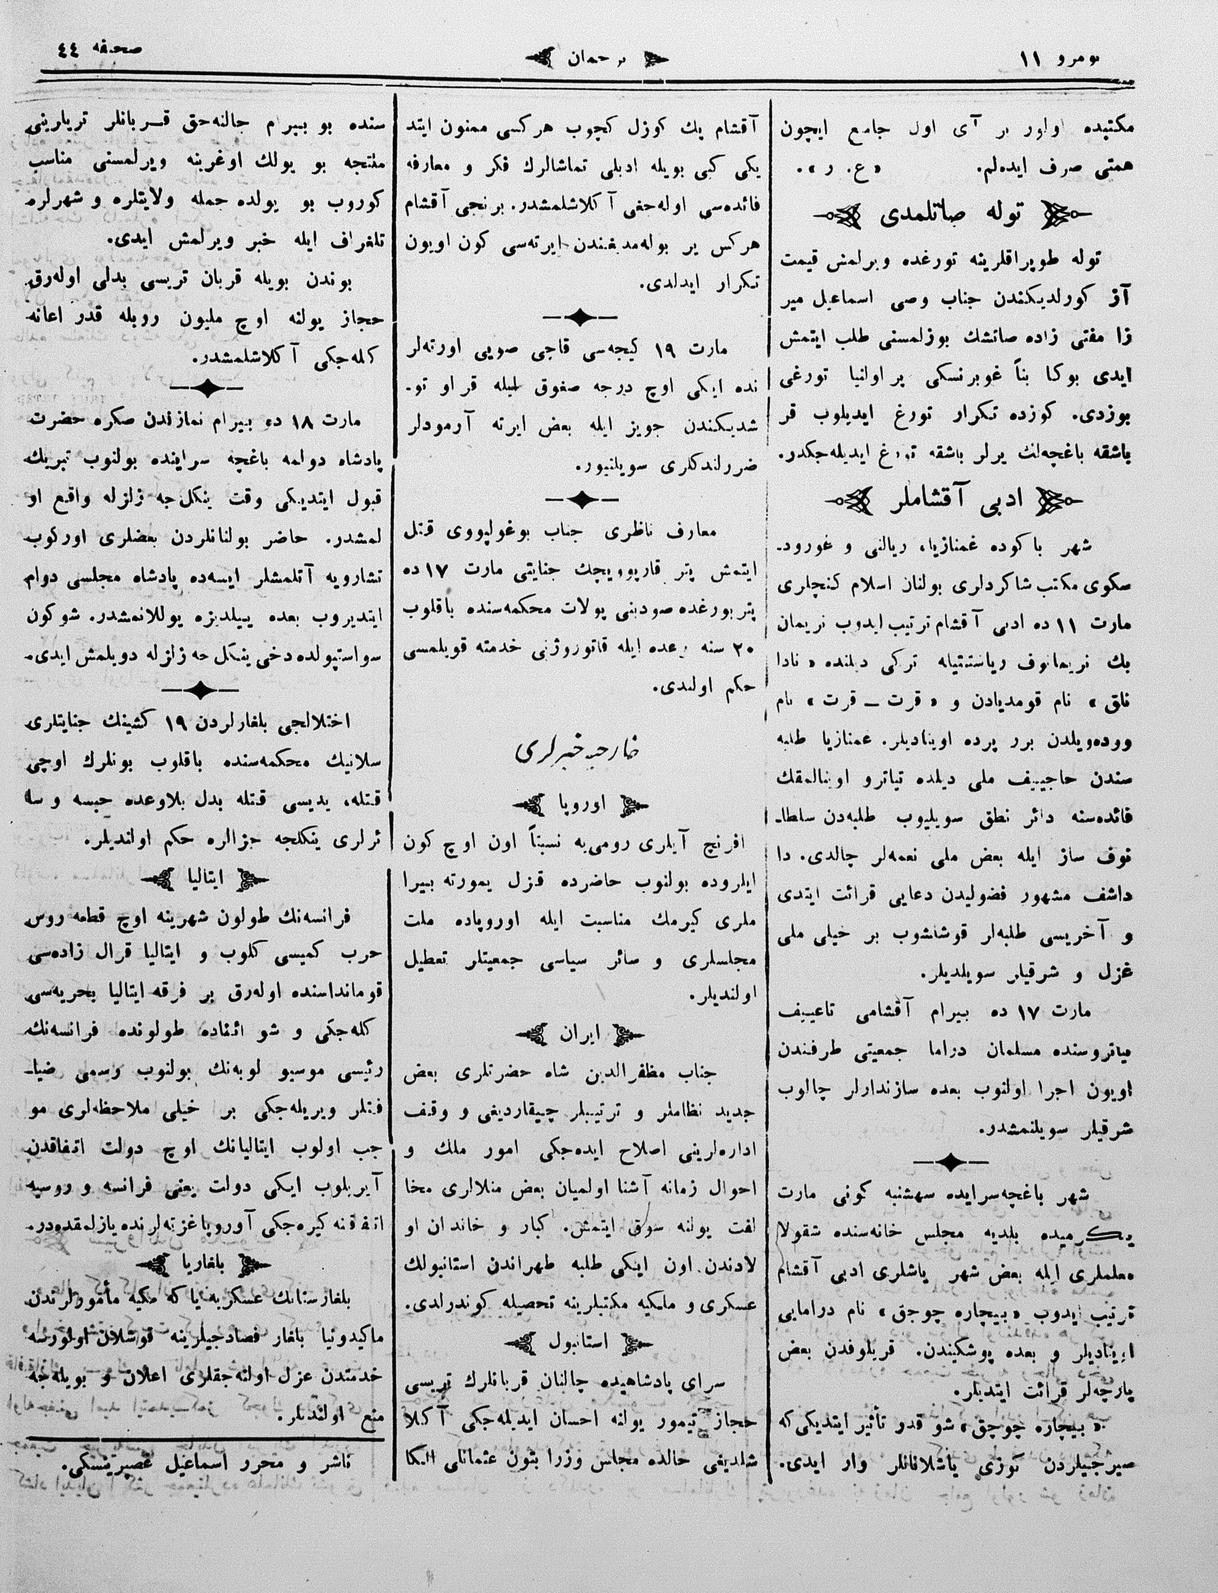 نومرو ١١
ترجمان
صحيفه ٤٤
مكتبده اولور بر آى اول جامع ايچون
همتى صرف ايده‌لم. «ع. ر».
توله صاتلمدى
توله طوپراقلرينه تورغده ويرلمش قيمت
آز كورلديكندن جناب وصى اسماعيل مير
زا مفتى زاده صاتشك بوزلمسنى طلب ايتمش
ايدى بوكا بناً غوبرنسكى پراولنيا تورغى
بوزدى. كوزده تكرار تورغ ايديلوب قر
باشقه باغچه‌لك يرلر باشقه تورغ ايديله‌جكدر.
ادبى آقشاملر
شهر باكوده غمنازيا، ريالنى و غورود-
سكوى مكتب شاكردلرى بولنان اسلام كنچلرى
مارت ١١ ده ادبى آقشام ترتيب ايدوب نريمان
بك نريمانوف رياستنتيله تركى ديلنده «نادا
نلق» نام قومديادن و «قرت ــ قرت» نام
ووده‌ويلدن برر پرده اوينادیلر. غمنازيا طلبه
سندن حاجييف ملى ديلده تياترو اوينالمقك
فائده‌سنه دائر نطق سويليوب طلبه‌دن سلطا-
نوف ساز ايله بعض ملى نغمه‌لر چالدى. دا
داشف مشهور فضوليدن دعايى قرائت ايتدى
و آخريسى طلبه‌لر قوشلشوب بر خيلى ملى
غزل و شرقيلر سويلديلر.
مارت ١٧ ده بيرام آقشامى تاعييف
تياتروسنده مسلمان دراما جمعيتى طرفندن
اويون اجرا اولنوب بعده سازندارلر چالوب
شرقيلر سويلنمشدر.
شهر باغچه‌سرايده سه‌شنبه كونى مارت
يكرميده بلديه مجلس خانه‌سنده شقولا
معلملرى ايله بعض شهر ياشلرى ادبى آقشام
ترتيب ايدوب «بيچاره چوجق» نام درامايى
اوينادیلر و بعده پوشكيندن. قريلوفدن بعض
پارچه‌لر قرائت ايتديلر.
«بيچاره چوجق» شو قدر تأثير ايتديكى‌كه
سيرجيلردن كوزى ياشلانانلر وار ايدى.
آقشام پك كوزل كچوب هركسى ممنون ايتد
يكى كبى بويله ادبلى تماشالرك فكر و معارفه
فائده‌سى اوله‌جغى آكلاشلمشدر. برنجى آقشام
هركس ير بوله‌مديغندن ايرته‌سى كون اويون
تكرار ايدلدى.
مارت ١٩ كيجه‌سى قاچى صويى اورته‌لر
نده ايكى اوچ درجه صغوق ليله قراو تو-
شديكندن جويز ايله بعض ايرته آرمودلر
ضررلندكلرى سويلنيور.
معارف ناظرى جناب بوغولپووى قتل
ايتمش پتر قارپوويچك جنايتى مارت ١٧ ده
پتربورغده صودبنى پولات محكمه‌سنده باقلوب
٢٠ سنه وعده ايله قاتورژنى خدمته قويلمسى
حكم اولندى.
خارجيه خبرلرى
اوروپا
افرنج آيلرى رومى‌يه نسبتاً اون اوچ كون
ايلروده بولنوب حاضرده قزل يمورته بيرا
ملرى كيرمك مناسبت ايله اوروپاده ملت
مجلسلرى و سائر سياسى جمعيتلر تعطيل
اولنديلر.
ايران
جناب مظفرالدين شاه حضرتلرى بعض
جديد نظاملر و ترتيبلر چيقارديغى و وقف
اداره‌لرينى اصلاح ايده‌جكى امور ملك و
احوال زمانه آشنا اولميان بعض منلالرى مخا
لفت يولنه سوق ايتمش. كبار و خاندان او
لادندن اون ايكى طلبه طهراندن استانبولك
عسكرى و ملكيه مكتبلرينه تحصيله كوندرلدى.
استانبول
سراى پادشاهيده چالنان قربانلرك تريسى
حجاز تيمور يولنه احسان ايديله‌جكى آكلا
شلديغى حالده مجلس وزرا بتون عثمانلى الكا
سنده بو بيرام چالنه‌جق قربانلر تريلرينى
ملتجه بو يولك اوغرينه ويرلمسنى مناسب
كوروب بو يولده جمله ولايتلره و شهرلره
تلغراف ايله خبر ويرلمش ايدى.
بوندن بويله قربان تريسى بدلى اوله‌رق
حجاز يولنه اوچ مليون روبله قدر اعانه
كله‌جكى آكلاشلمشدر.
مارت ١٨ ده بيرام نمازندن صكره حضرت
پادشاه دولمه باغچه سراينده بولنوب تبريك
قبول ايتديكى وقت ينكل‌جه زلزله واقع او
لمشدر. حاضر بولنانلردن بعضلرى اوركوب
تشارويه آتلمشلر ايسه‌ده پادشاه مجلسى دوام
ايتديروب بعده ييلديزه يوللانمشدر. شوكون
سواستپولده دخى ينكل‌جه زلزله دويلمش ايدى.
اختلالجى بلغارلردن ١٩ كشينك جنايتلرى
سلانيك محكمه‌سنده باقلوب بونلرك اوچى
قتله، يديسى قتله بدل بلاوعده حبسه و سا
ئرلرى ينكلجه جزالره حكم اولنديلر.
ايتاليا
فرانسه‌نك طولون شهرينه اوچ قطعه روس
حرب كميسى كلوب و ايتاليا قرال زاده‌سى
قومانداسنده اوله‌رق بر فرقه ايتاليا بحريه‌سى
كله‌جكى و شو اثناده طولونده فرانسه‌نك
رئيسى موسيو لوبه‌نك بولنوب رسمى ضيا-
فتلر ويريله‌جكى بر خيلى ملاحظه‌لرى مو
جب اولوب ايتاليانك اوچ دولت اتفاقدن
آيريلوب ايكى دولت يعنى فرانسه و روسيه
اتفاقنه كيره‌جكى آوروپا غزته‌لرنده يازلمقده‌در.
بلغاريا
بلغارستانك عسكريه ياكه ملكيه مأمورلرندن
ماكيدونيا بلغار فسادجيلرينه قوشلان اولورسه
خدمتدن عزل اولنه‌جقلرى اعلان و بويله‌جه
منع اولنديلر.
ناشر و محرر اسماعيل غصپرينسكى.